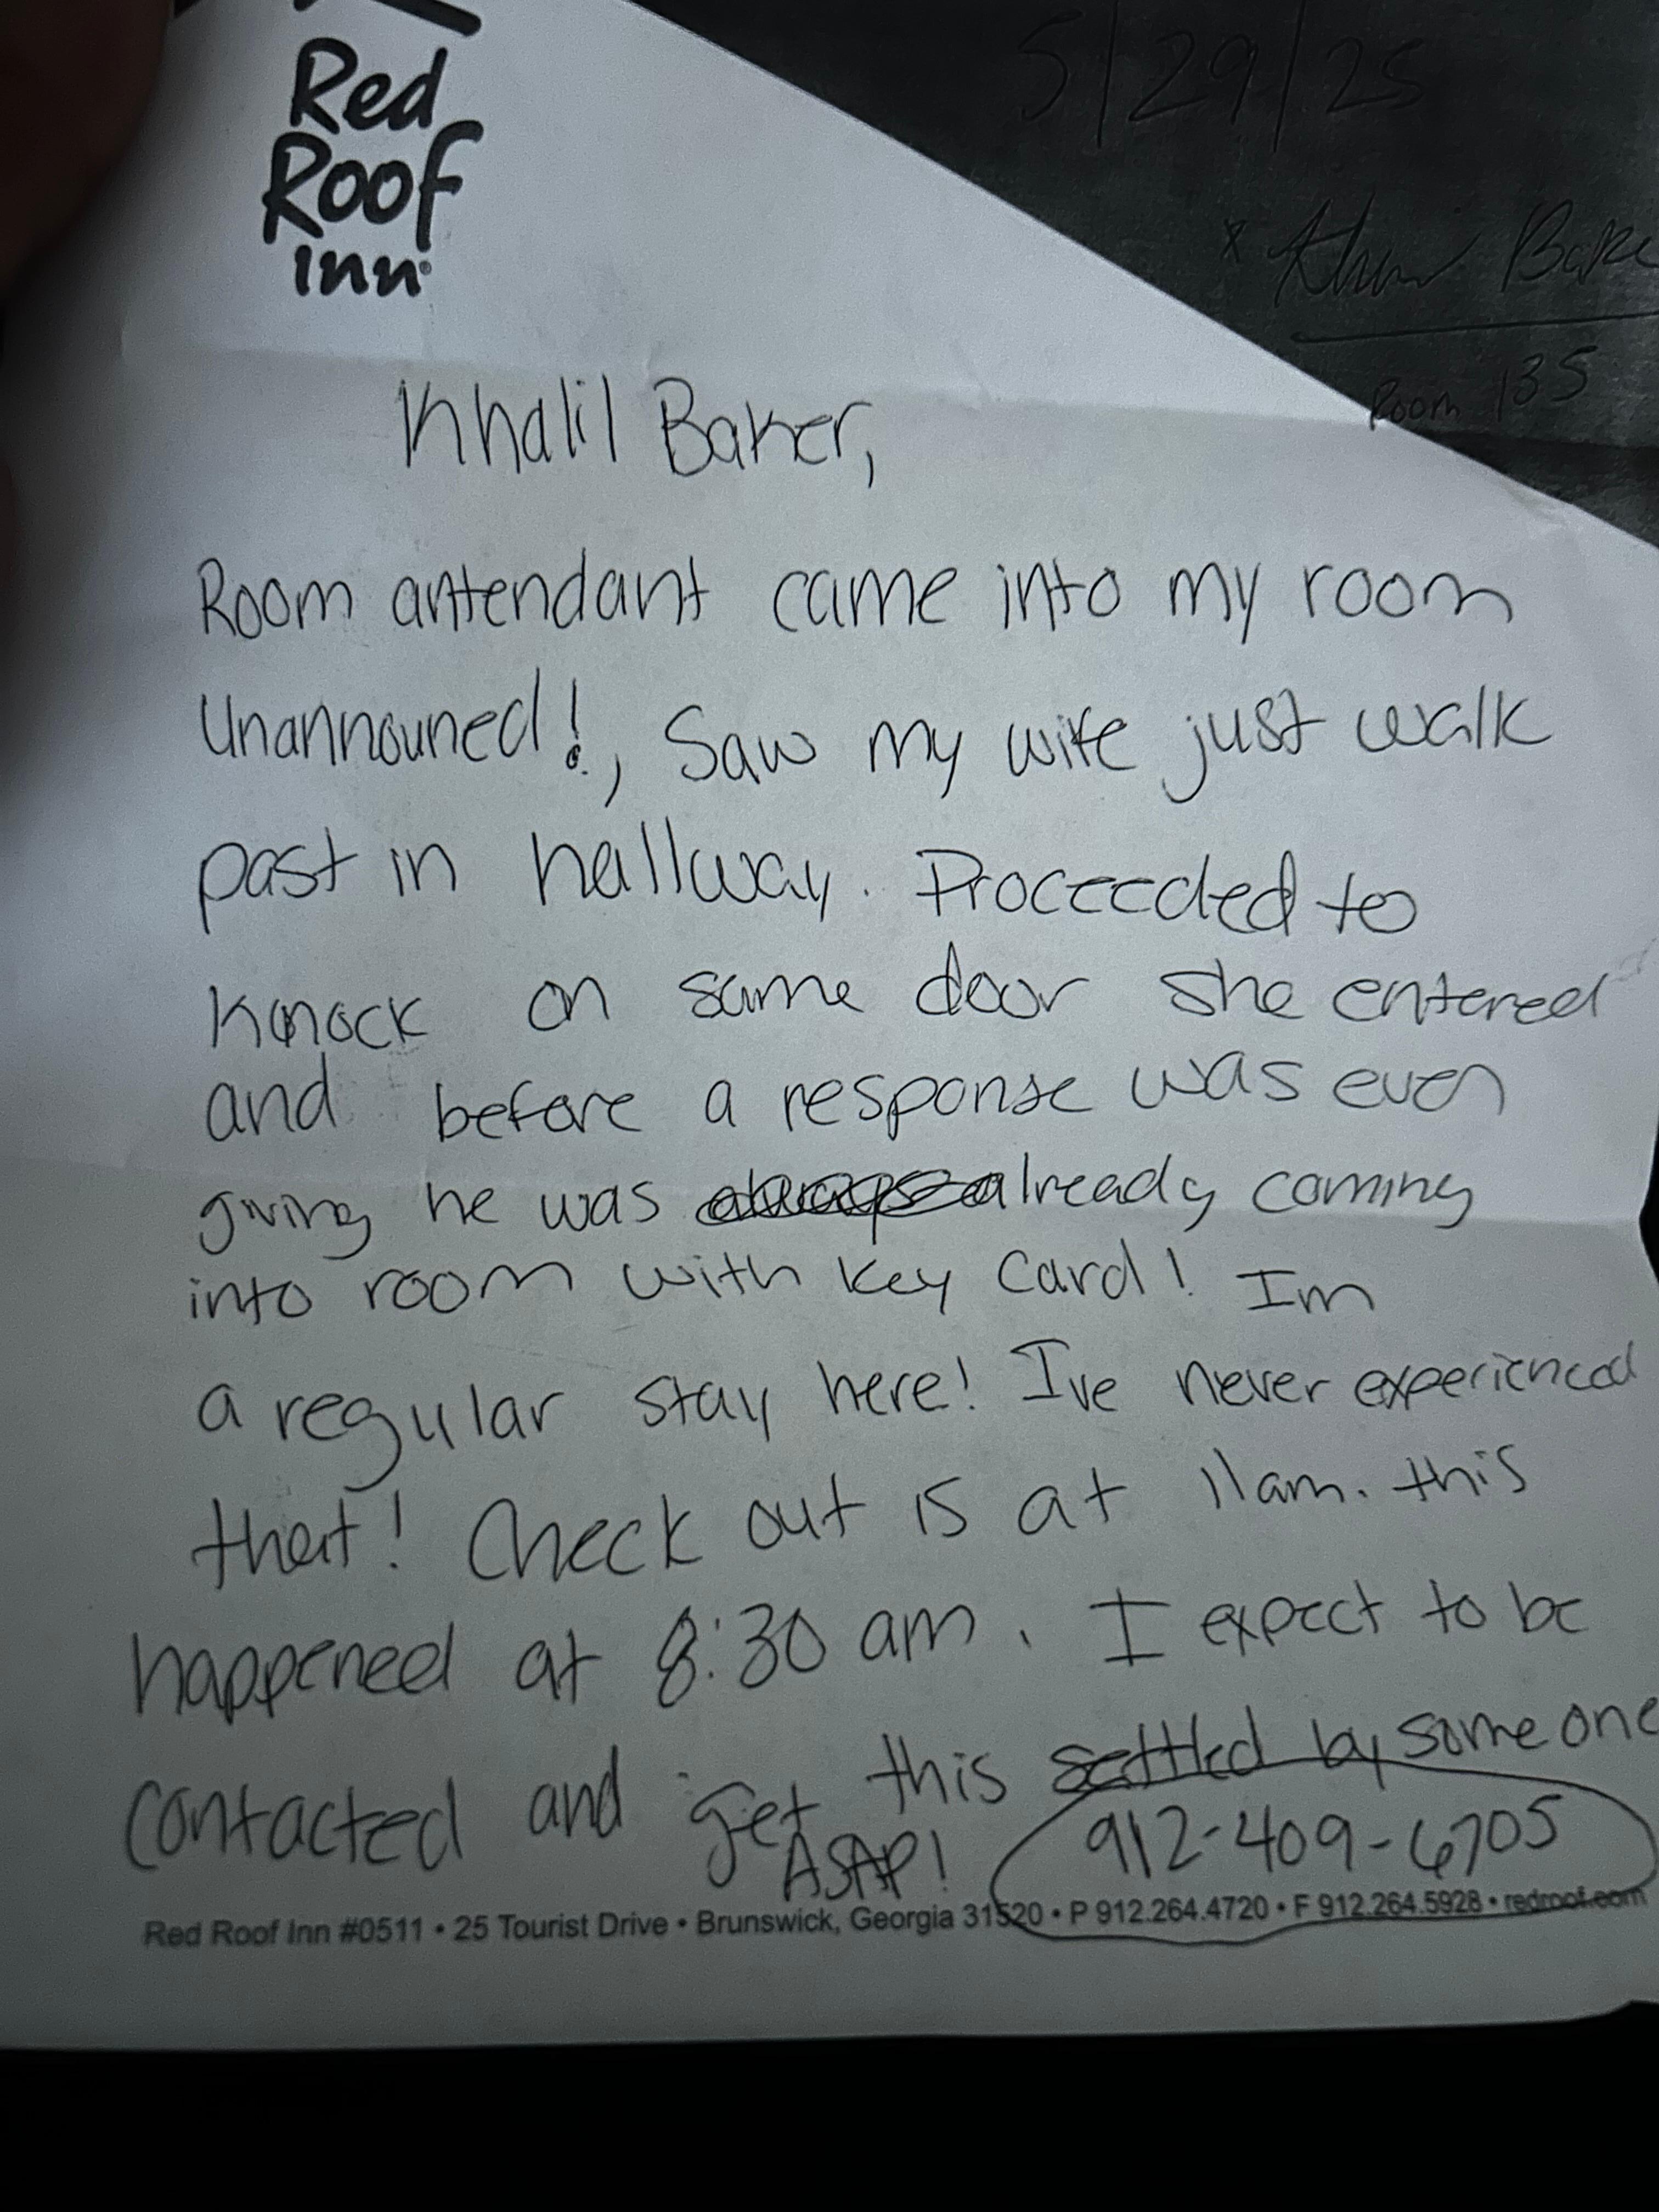 Red
Roof
Inn
5/29/25
x Baker
Room 135
Khalil Baker,
Room antendant came into my room
Unannouned!, Saw my wife just walk
past in hallway. Proceeded to
Knock on same door she entered
and before a response was even
giving he was already coming
into room with key card! Im
a regular stay here! I've never experienced
that! Check out is at 11am. this
happened at 8:30 am. I expect to be
contacted and get this settled by someone
ASAP! 912-409-6705
Red Roof Inn #0511 • 25 Tourist Drive • Brunswick, Georgia 31520 • P 912.264.4720 • F 912.264.5928 • redroof.com